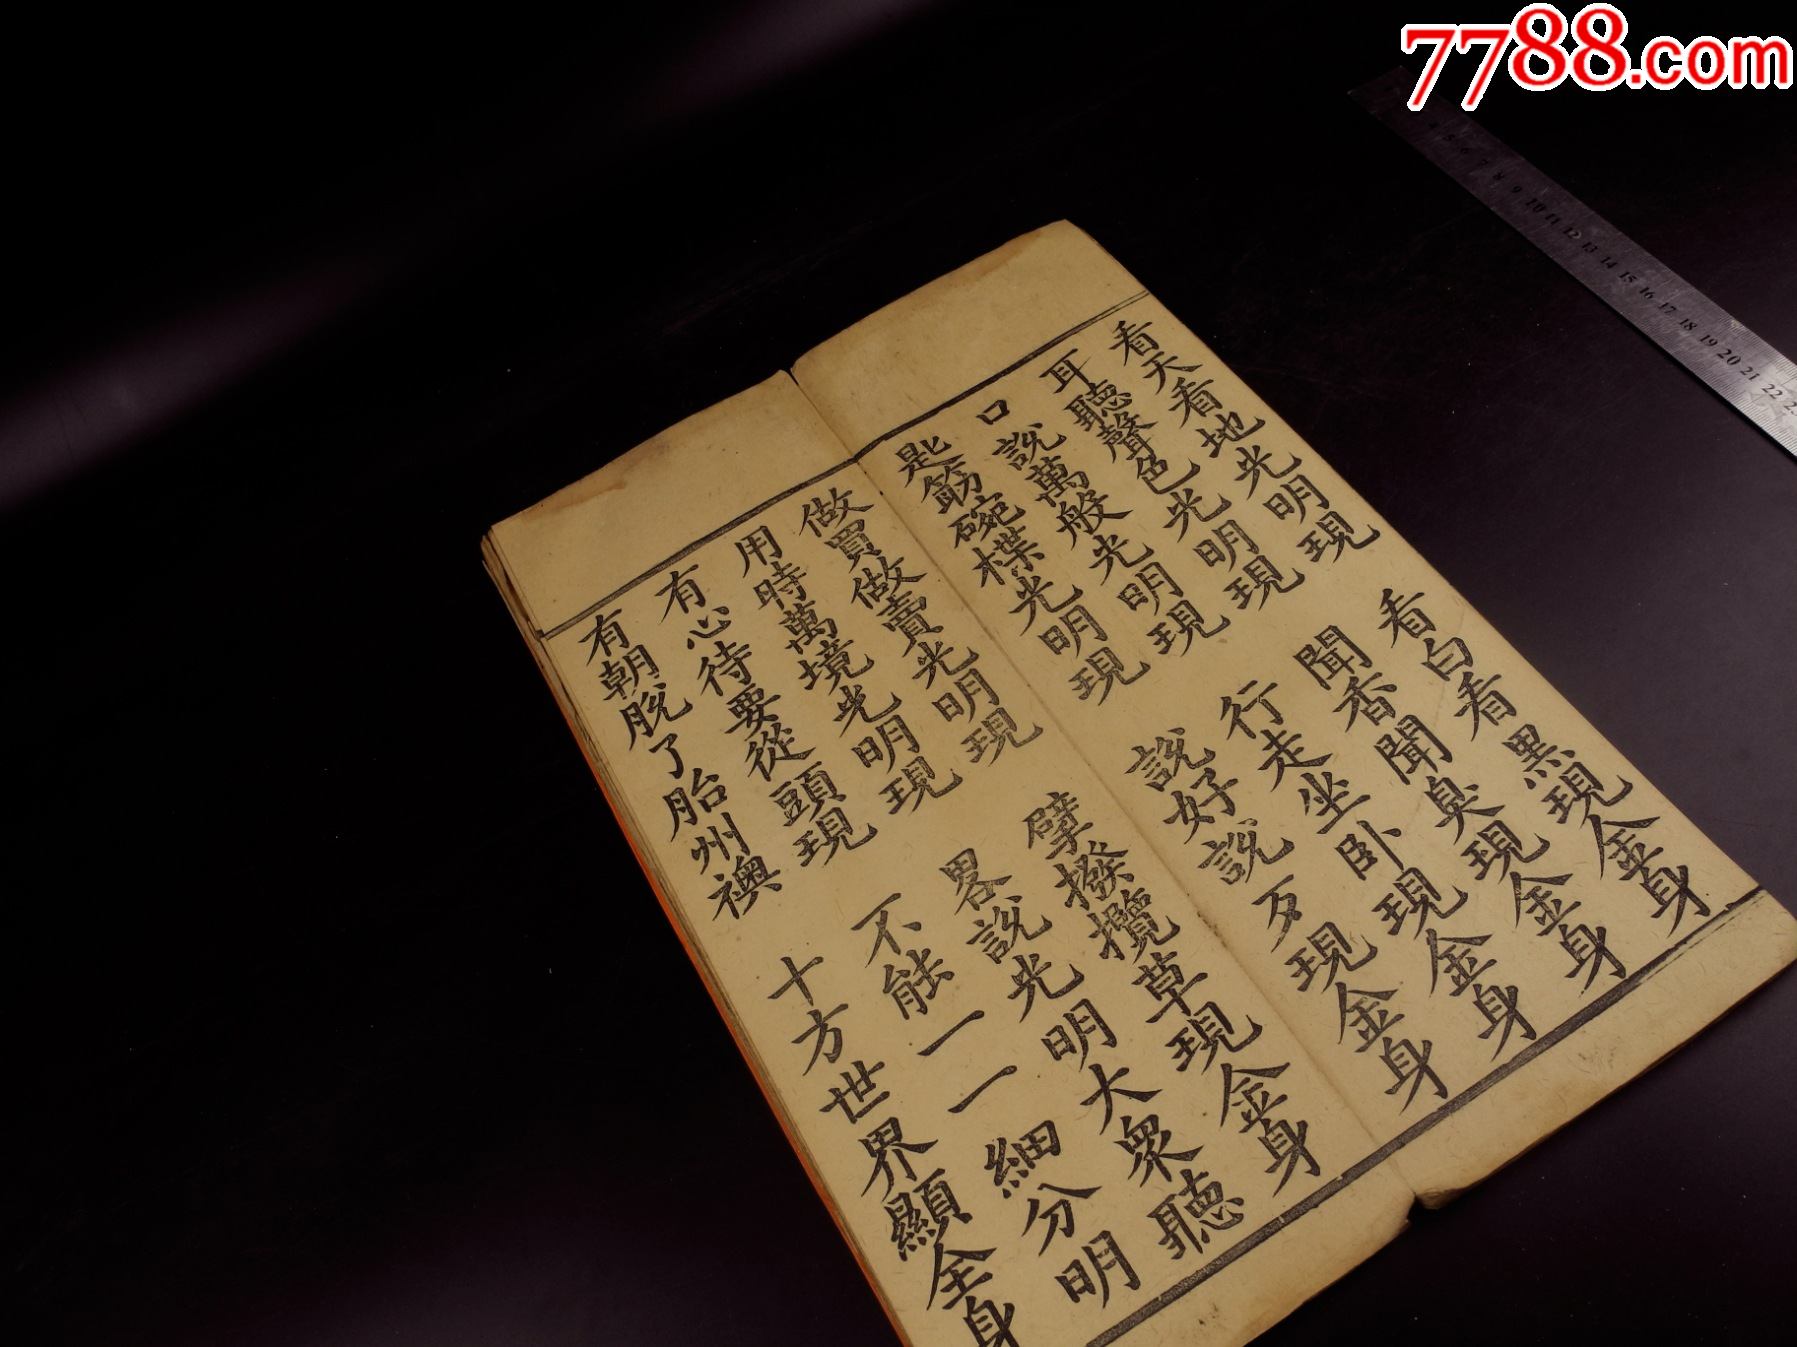 7788.com
看天看地光明現 看白看黑現金身
耳聽聲色光明現 聞香聞臭現金身
口說萬般光明現 行走坐卧現金身
匙筯碗楪光明現 說好說歹現金身
做買做賣光明現 擘撥攬草現金身
用時萬境光明現 畧說光明大衆聽
有心待要從頭現 不能一一細分明
有朝脫了胎州襖 十方世界顯全身
4 5 6 7 8 9 10 11 12 13 14 15 16 17 18 19 20 21 22